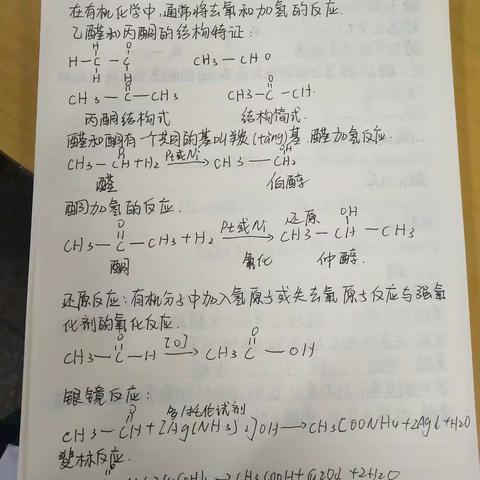 在有机化学中,通常将去氧和加氢的反应.
乙醛和丙酮的结构特征:
H O
H-C-C CH3-CHO
H H
O O
CH3-C-CH3 CH3-C-CH.
丙酮结构式 结构简式.
醛和酮有一个共同的基叫羰(tāng)基.醛加氢反应.
O OH
CH3-CH+H2 Pt或Ni→ CH3-CH2
醛 伯醇
酮加氢的反应.
O OH
CH3-C-CH3+H2 Pt或Ni→ 还原 CH3-CH-CH3
酮 氧化 仲醇.
还原反应:有机分子中加入氢原子或失去氧原子反应与强氧
化剂的氧化反应.
O O
CH3-C-H [O]→ CH3C-OH
银镜反应:
O
CH3-CH+[Ag(NH3)2]OH→CH3COONH4+2Ag↓+H2O
斐林反应.
→CH3COOH+Cu2O↓+2H2O